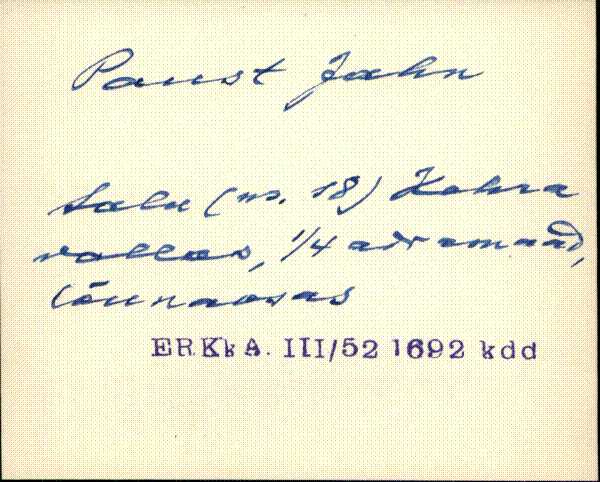 Paust Jahn
talu (nr. 18) Kohra
vallas, 1/4 adramaad,
lõunaosas
ERKkA. III/52 1692 kdd